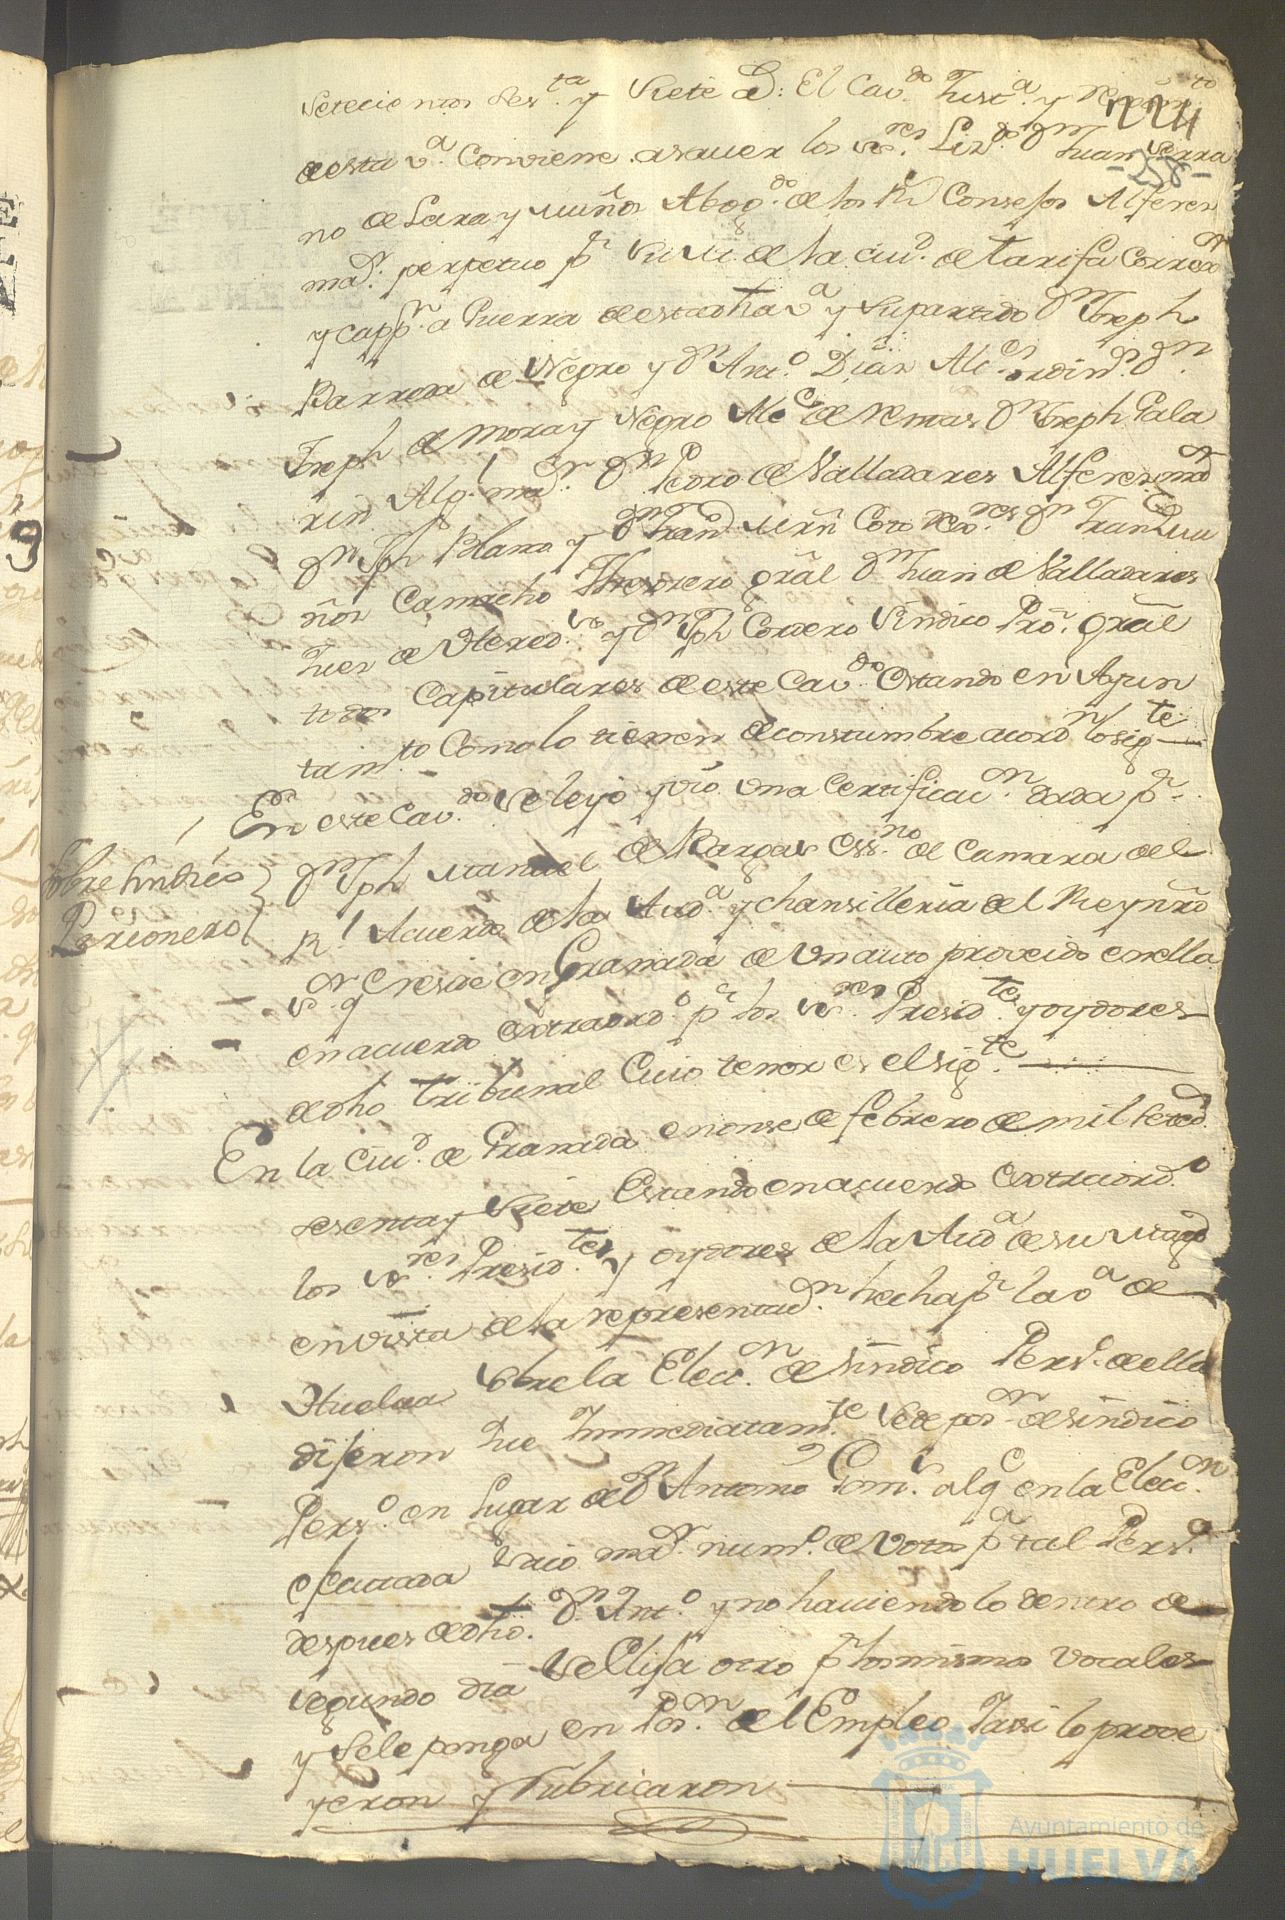 setecientos ses.ta y siete a.s: El Cav.do Just.a y
224
de esta v.a Conviene asauer los ss.res Liz.do Dn Juan Serra
-258-
no de Lara y Muños Abog.do de los Rs Consejos Alferes
ma.r perpetuo pr su M. de la ciu.d de tarifa Correx.or
y capp.n a Guerra de esta dha v.a y su partido Dn Joseph
Barrera de Negro y Dn Ant.o Dias Alc.es ordin.s Dn
Joseph de Mora y Negro Alc.e de rentas Dn Joseph Pala
rin Alg.l ma.or Dn Pedro de Valladares Alferes ma.or
Dn Jph Blanco y Dn Fran.co Mrn Coto Rex.res Dn Fran.co Mu
ños Camacho Thesorero gral Dn Juan de Valladares
Jues de Hered.s y Dn Jph Cordero Sindico Pro.r gral
todos Capitulares de este Cav.do Estando en Ayun
tam.to Como lo tienen de constumbre acord.n lo sig.te
En este Cav.do se leyo y vio una certificac.n dada pr
Sobre sindico
Persionero
Dn Jph Manuel de Vargas Ess.no de Camara del
R.l Acuerdo de la Aud.a y chansilleria del Rey nro
s.or q.e reside en Granada de Un auto proveido en ella
en acuerdo extraord.o pr los ss.res Presid.te y oydores
de dho tribunal Cuio tenor es el sig.te
En la Ciu.d de Granada en onse de febrero de mil seteс.s
sesenta y siete Estando en acuerdo extraord.o
los ss.res Presid.te y oydores de la Aud.a de su Mag.d
en vista de la representac.n hecha pr la v.a de
Huelva sobre la Elecc.n de sindico Pers.o de ella
dijeron Que Immediatam.te se de pos.on de sindico
Pers.o en Lugar de Dn Antonio al q.e en la Elecc.n
ejecutada saco ma.r num.o de Votos pa tal Pers.o
despues de dho. Dn Ant.o y no haciendolo dentro de
segundo dia se Elija otro pr los mismos Vocales
y se le ponga en Pos.on del Empleo Y asi lo prove
yeron y Rubricaron
Ayuntamiento de
HUELVA